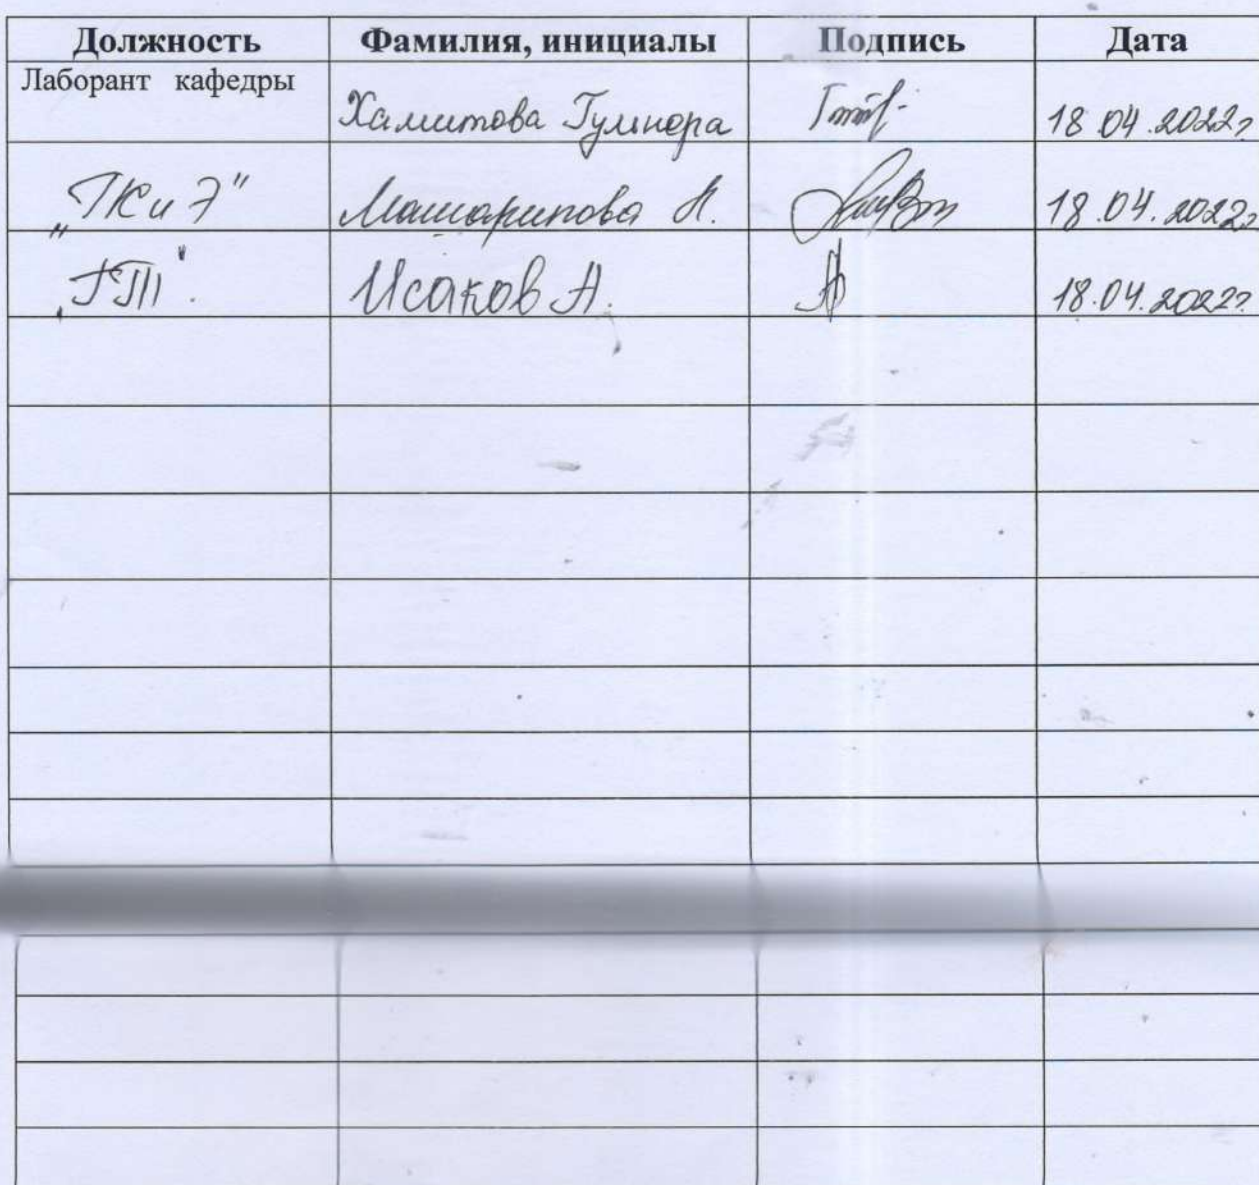 Должность Фамилия, инициалы Подпись Дата
Лаборант кафедры
Хамитова Гулнора 18.04.2022г
"ГКиЭ" Машарипова Н. 18.04.2022г
"ГТ". Исаков А. 18.04.2022г.